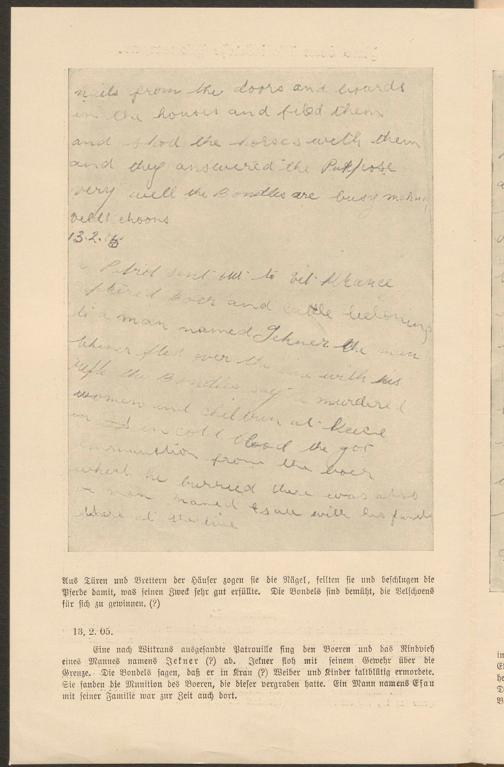 nails from the doors and boards
in the houses and filed them
and shod the horses with them
and they answered the Purpose
very well the Bondles are busy making
veldt choons
13.2.05
a Patrol sent out to Vit Kranee
captured Boer and cattle belonging
to a man named Jekner the man
Jekner fled over the line with his
rifle the Bondles say a murdered
women and children at
in cold blood the got
ammunition from the boer
which he burried there was also
a man named Esau with his family
there at the time
Aus Türen und Brettern der Häuser zogen sie die Nägel, feilten sie und beschlugen die
Pferde damit, was seinen Zweck sehr gut erfüllte. Die Bondels sind bemüht, die Velschoens
für sich zu gewinnen. (?)
13. 2. 05.
Eine nach Witkrans ausgesandte Patrouille fing den Boeren und das Rindvieh
eines Mannes namens Jekner (?) ab. Jekner floh mit seinem Gewehr über die
Grenze. Die Bondels sagen, daß er in Krau (?) Weiber und Kinder kaltblütig ermordete.
Sie fanden die Munition des Boeren, die dieser vergraben hatte. Ein Mann namens Esau
mit seiner Familie war zur Zeit auch dort.